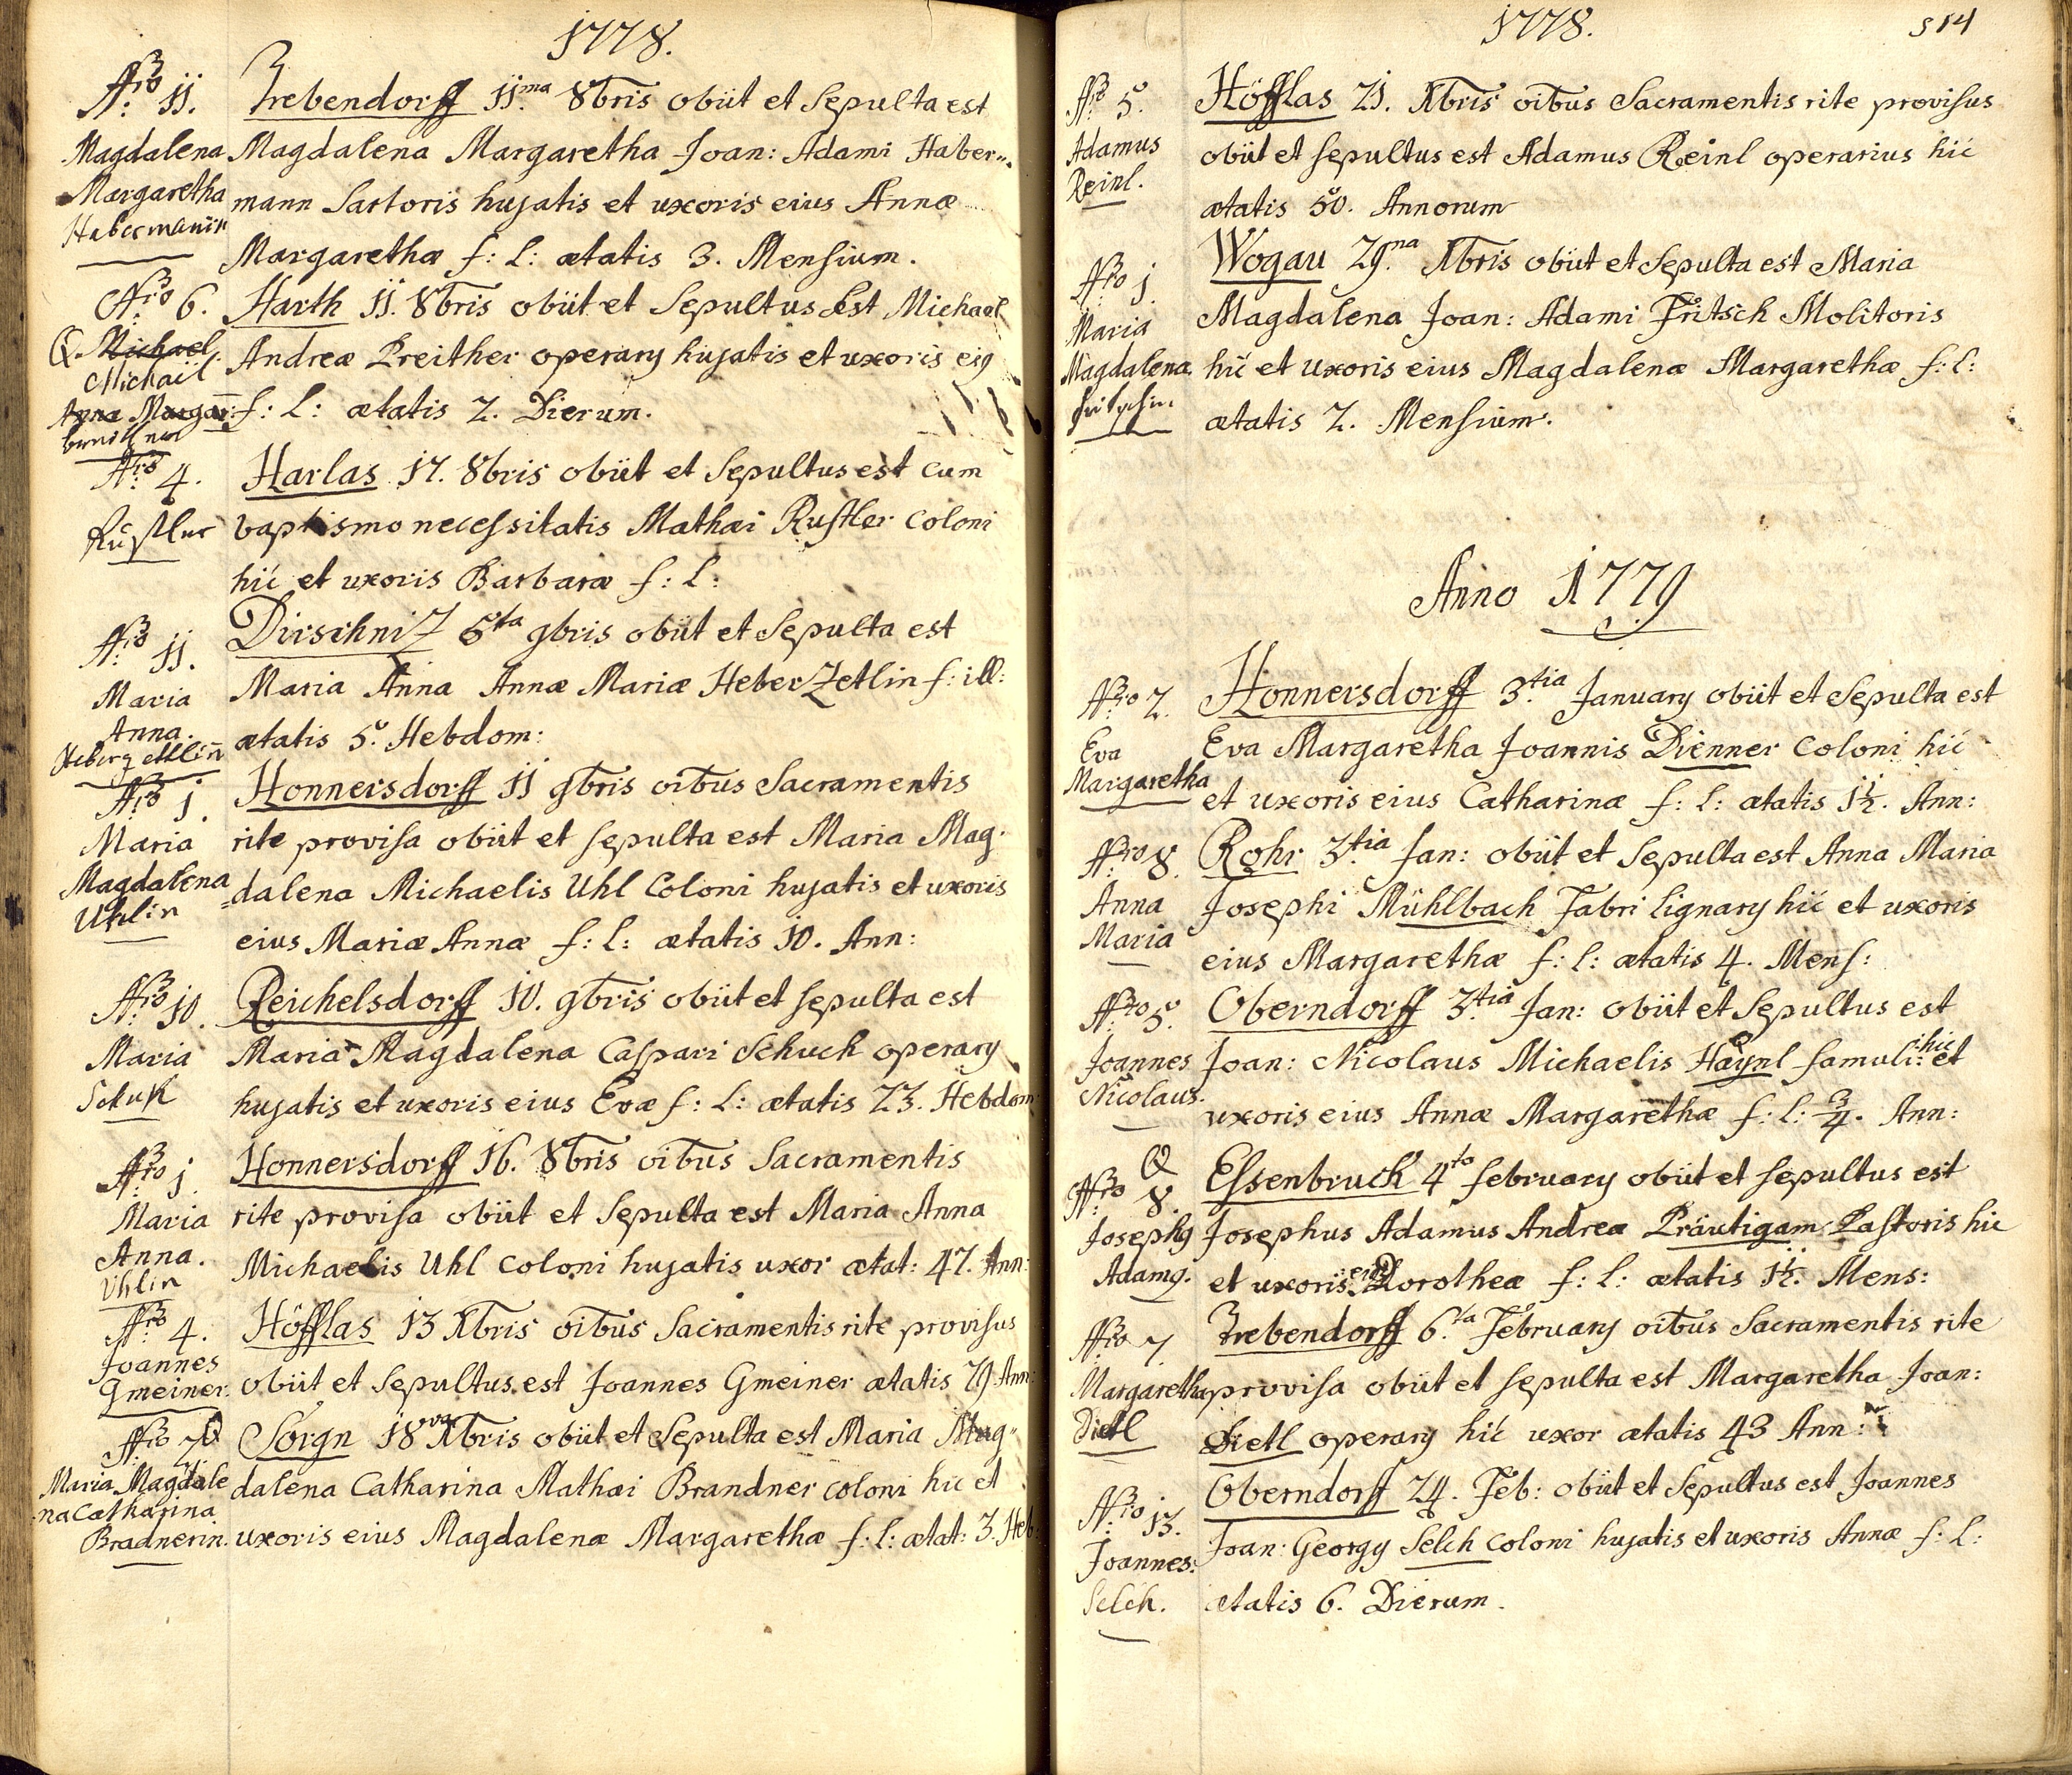 1778.
Nro 11. Trebendorff 11.ma 8bris obiit et Sepulta est
Magdalena Magdalena Margaretha Joan: Adami Haber„
Margaretha mann Sartoris hujatis et uxoris eius Annæ
Habermanin Margarethæ f: l: ætatis 3. Mensium.
Nro 6. Harth 11. 8bris obiit et Sepultus est Michael
Michael Andreæ Preither operarij hujatis et uxoris eiq
Michaël
Anna Margar: f: l: ætatis 2. Dierum.
Nro 4. Harlas 17. 8bris obiit et Sepultus est cum
Rustler baptismo necessitatis Mathæi Rustler coloni
hic et uxoris Barbaræ f: l:
Nro 11. Dirschniz 5ta 9bris obiit et Sepulta est
Maria Maria Anna Annæ Mariæ Heberzetlin f: ill:
Anna. ætatis 5. Hebdom:
Heberzettlin
Nro 1. Honnersdorff 11 9bris oibus Sacramentis
Maria rite provisa obiit et sepulta est Maria Mag-
Magdalena =dalena Michaelis Uhl Coloni hujatis et uxoris
Uhlin eius Mariæ Annæ f: l: ætatis 10. Ann:
Nro 10. Reichelsdorff 10. 9bris obiit et sepulta est
Maria Maria Magdalena Caspari Schuch operarij
Schuk hujatis et uxoris eius Evæ f: l: ætatis 23. Hebdom:
Nro 1. Honnersdorff 16. 8bris oibus Sacramentis
Maria rite provisa obiit et Sepulta est Maria Anna
Anna. Michaelis Uhl coloni hujatis uxor ætat: 47. Ann:
Uhlin
Nro 4. Höfflas 13 Xbris oibus Sacramentis rite provisus
Joannes
Gmeiner. obiit et Sepultus est Joannes Gmeiner ætatis 79 Ann:
Nro 2 Sorgn 18va Xbris obiit et Sepulta est Maria Mag„
Maria Magdale dalena Catharina Mathæi Brandner coloni hic et
na Catharina
Bradnerin. uxoris eius Magdalenæ Margarethæ f: l: ætat: 3. Heb:
1778. 514
Nro 5. Höfflas 21. Xbris oibus Sacramentis rite provisus
Adamus obiit et sepultus est Adamus Reinl operarius hic
Reinl. ætatis 50. Annorum
Nro 1. Wogau 29.na Xbris obiit et Sepulta est Maria
Maria Magdalena Joan: Adami Fritsch Molitoris
Magdalena hic et Uxoris eius Magdalenæ Margarethæ f: l:
Fritschin ætatis 2. Mensium.
Anno 1779
Nro 2. Honnersdorff 3.tia Januarij obiit et Sepulta est
Eva Eva Margaretha Joannis Dienner Coloni hic
Margaretha et uxoris eius Catharinæ f: l: ætatis 1½. Ann:
Nro 8. Rohr 3.tia Jan: obiit et Sepulta est Anna Maria
Anna Josephi Mühlbach Fabri lignarij hic et uxoris
Maria eius Margarethæ f: l: ætatis 4. Mens:
Nro 5. Oberndorff 3.tia Jan: obiit et Sepultus est
Joannes Joan: Nicolaus Michaelis Haÿnl famuli hic et
Nicolaus. uxoris eius Annæ Margarethæ f: l: ¾. Ann:
Nro 8. Essenbruck 4to februarij obiit et sepultus est
Josephq Josephus Adamus Andreæ Präutigam Pastoris hic
Adamq. et uxoris eiq Dorotheæ f: l: ætatis 1½. Mens:
Nro 7. Trebendorff 6.ta Februarij oibus Sacramentis rite
Margaretha provisa obiit et sepulta est Margaretha Joan:
Dietl Dietl operarij hic uxor ætatis 43 Ann:
Nro 13. Oberndorff 24. Feb: obiit et Sepultus est Joannes
Joannes. Joan: Georgij Selch coloni hujatis et uxoris Annæ f: l:
Selch. ætatis 6. Dierum.